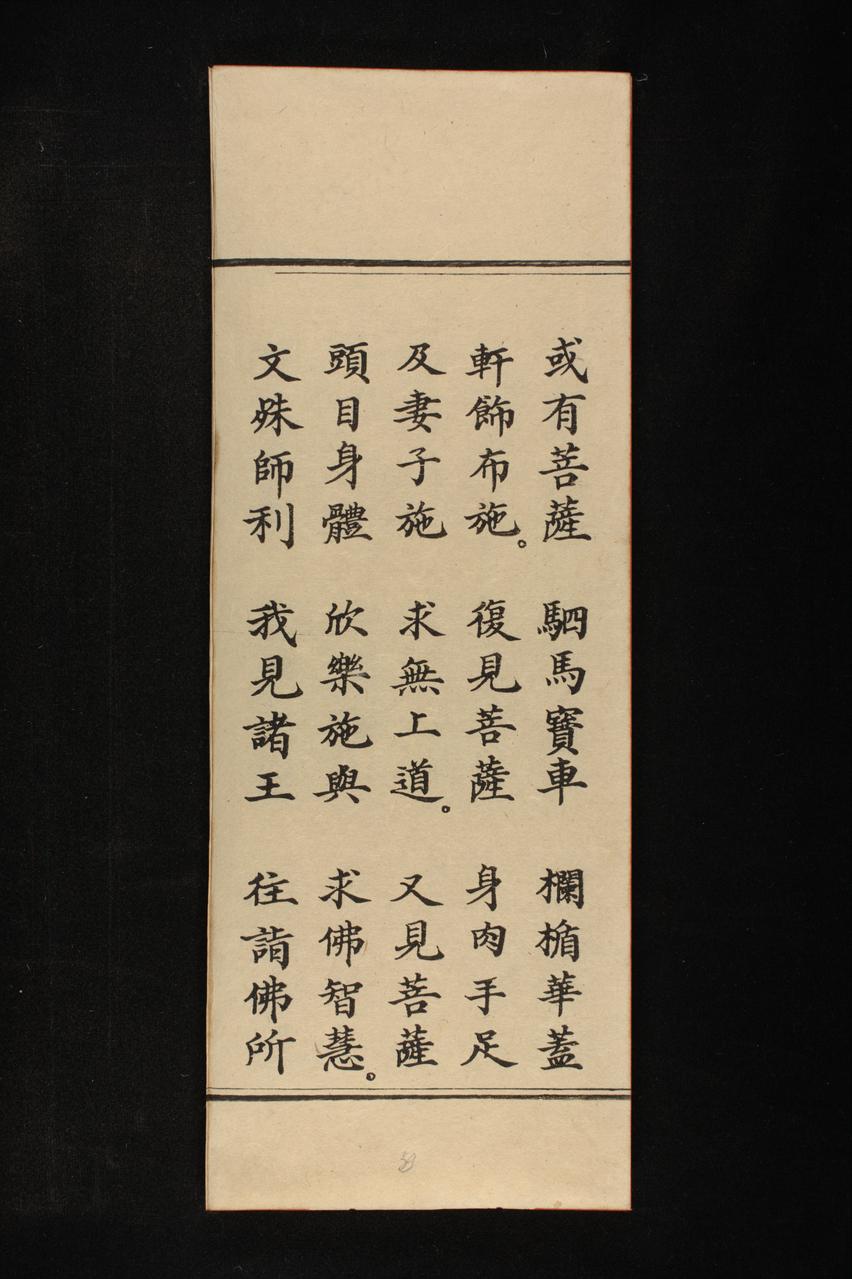 或有菩薩　駟馬寶車　欄楯華蓋
軒飾布施。復見菩薩　身肉手足
及妻子施　求無上道。又見菩薩
頭目身體　欣樂施與　求佛智慧。
文殊師利　我見諸王　往詣佛所